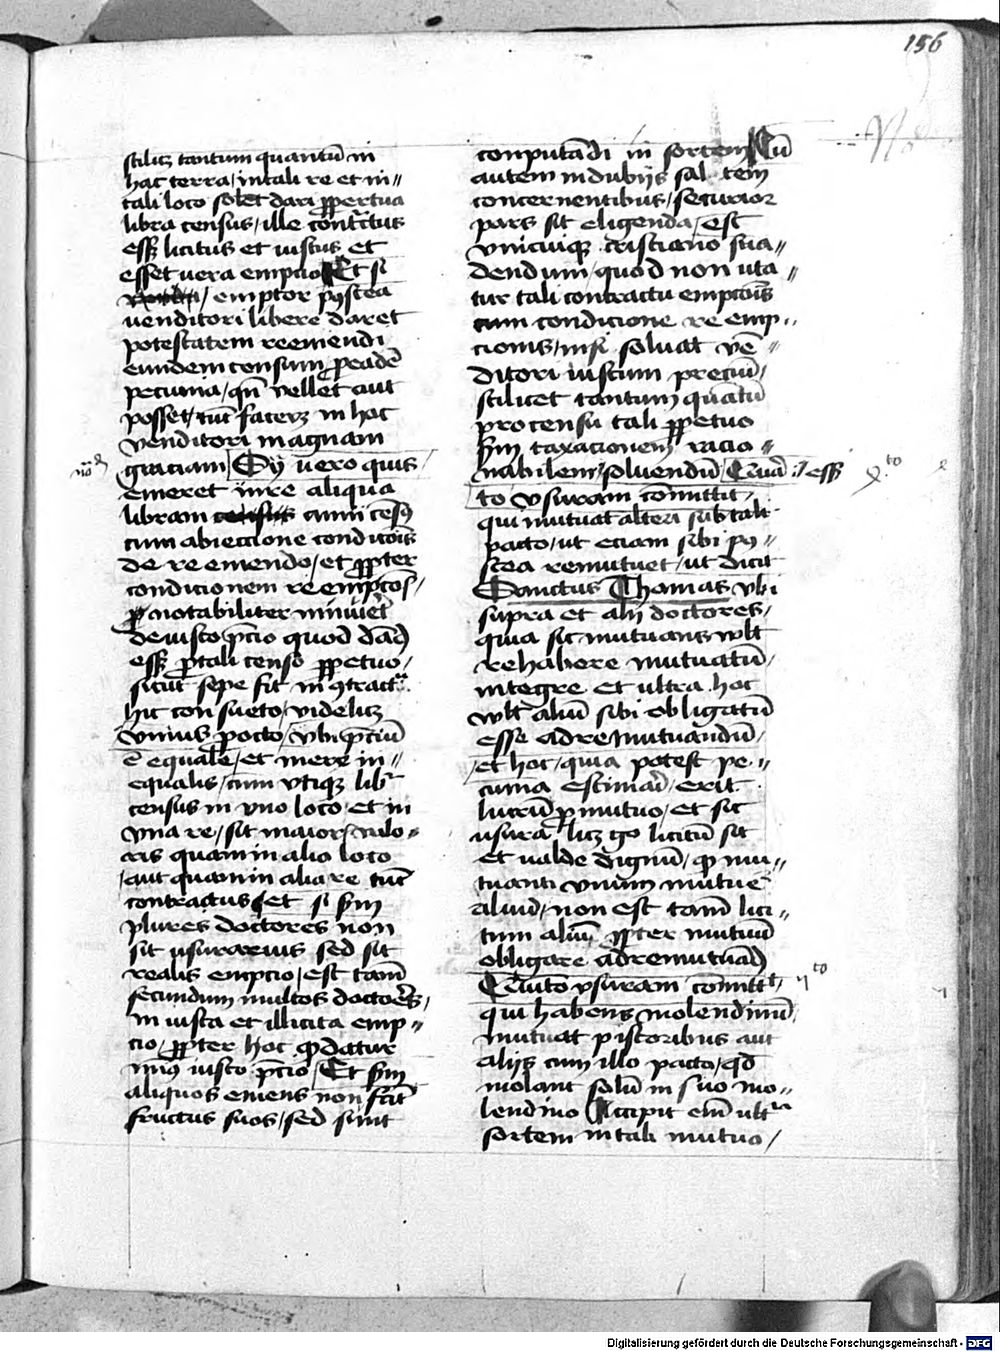 156
scilicet tantum quantū in
hac terra / in tali re et in〃
tali loco solet dari ꝑpetua
libra census / ille contractus
esset licitus et iustus et
esset vera empcio Et si
emptor postea
uenditori libere daret
potestatem reemendi
eundem censum pro eadē
pecunia / qn̄ vellet aut
posset / tūc faceret in hoc
venditori magnam
graciam Sy uero quis
emeret in re aliqua
libram census cum
cum abiectione condicōis
de reemendo / et ꝓpter
condicionem reempcōis /
notabiliter minueret
de iusto precio quod
esset pro tali censo ꝑpetuo /
sicut sepe fit in contractu
hic consueto / videlicet
vnius pacto / vbi precium
ē equale / et mere in〃
equalis / cum vtique libra
census in vno loco et in
vna re / sit maioris valo〃
ris quam in alio loco
/ aut quam in alia re tūc
contractus / et si scd̄m
plures doctores non
sit usurarius sed sit
realis empcio / est tamē
secundum multos doctores /
iniusta et illicita emp〃
cio / ꝓpter hoc quod datur
minus iusto precio / Et scd̄m
aliquos emens non facit
fructus suos / sed sunt
conputādi in sortem Cū
autem in dubijs salutem
concernentibus / securior
pars sit eligenda / est
vnicuique cristiano sua〃
dendum / quod non uta〃
tur tali contractu empcōis
cum condicione reemp〃
cionis / nisi soluat vē〃
ditori iustum preciū /
scilicet tantum quātū
pro censu tali ꝑpetuo
scd̄m taxacionem racio〃
nabilem / soluendū Quar
to vsuram cōmittit /
qui mutuat alteri sub tali
pacto / ut eciam sibi po〃
stea remutuet / ut dicit
Sanctus Thomas vbi
supra et alij doctores /
quia sic mutuans vult
rehabere mutuatū /
integre et ultra hoc
vult aliū sibi obligatū
esse ad remutuandū /
/ et hoc / quia potest pe〃
cunia estimari / erit
lucrū pro mutuo / et sic
usura licet ergo licitū sit
et ualde dignū / quod mu〃
tuanti vnum mutuet
aliud / non est tamē lici〃
tum aliū ꝓpter mutuū
obligare ad remutuandum
Quinto vsuram cōmittit /
qui habens molendinū /
mutuat pistoribus aut
alijs cum illo pacto / qd
molant solū in suo mo〃
lendino Accipit enim ultra
sortem in tali mutuo /
Digitalisierung gefördert durch die Deutsche Forschungsgemeinschaft - DFG